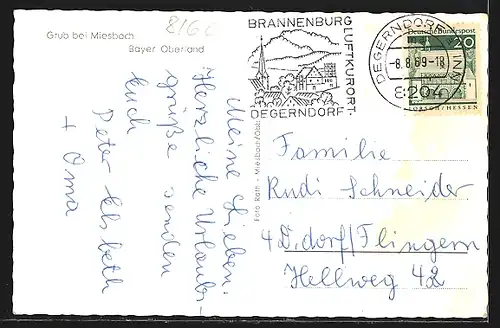 Grub bei Miesbach
Bayer Oberland
8160
Meine Lieben.
Herzliche Urlaubs-
grüße senden
Euch
Peter Elsbeth
+ Oma
BRANNENBURG
LUFTKURORT
DEGERNDORF
DEGERNDORF (INN)
-8.8.69-18
8204
Deutsche Bundespost
20
LORSCH/HESSEN
Foto Roth - Miesbach/Obb.
Familie
Rudi Schneider
4 D.dorf/Flingern
Hellweg 42